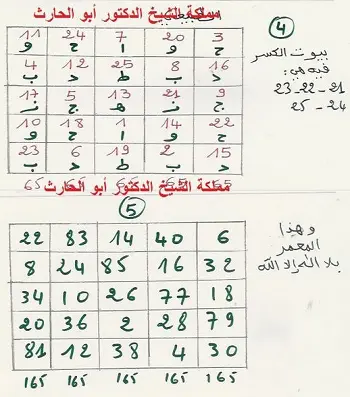 مملكة الشيخ الدكتور أبو الحارث
11 24 7 20 3
ح و ا ح و
4 12 25 8 16
د ب ط د ب
17 5 13 21 9
ج ز ه ج ز
10 18 1 14 22
ح و ا ح و
23 6 19 2 15
د ب ط د ب
65 65 65 65 65
4
بيوت الكسر
فيه هي:
23-22-21
25-24
مملكة الشيخ الدكتور أبو الحارث
5
22 83 14 40 6
8 24 85 16 32
34 10 26 77 18
20 36 2 28 79
81 12 38 4 30
165 165 165 165 165
وهذا
المعمر
بلا اله إلا الله